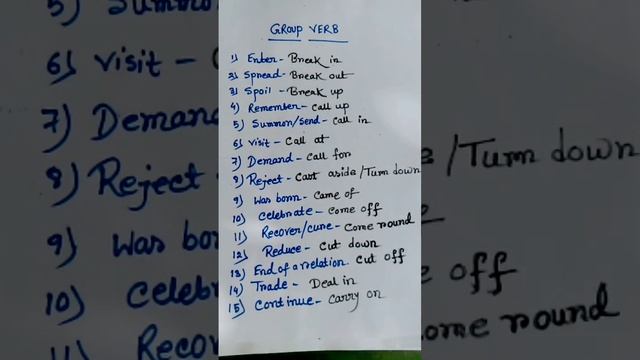 GROUP VERB
1) Enter - Break in
2) Spread - Break out
3) Spoil - Break up
4) Remember - call up
5) Summon/send - call in
6) visit - Call at
7) Demand - Call for
8) Reject - Cast aside/Turn down
9) Was born - Came of
10) celebrate - come off
11) Recover/cure - Come round
12) Reduce - Cut down
13) End of a relation. Cut off
14) Trade - Deal in
15) Continue - Carry on
5) Summo
6) visit -
7) Demand
8) Reject -
9) Was bor
10) Celebr
11) Recov
/Turn down
off
ome round